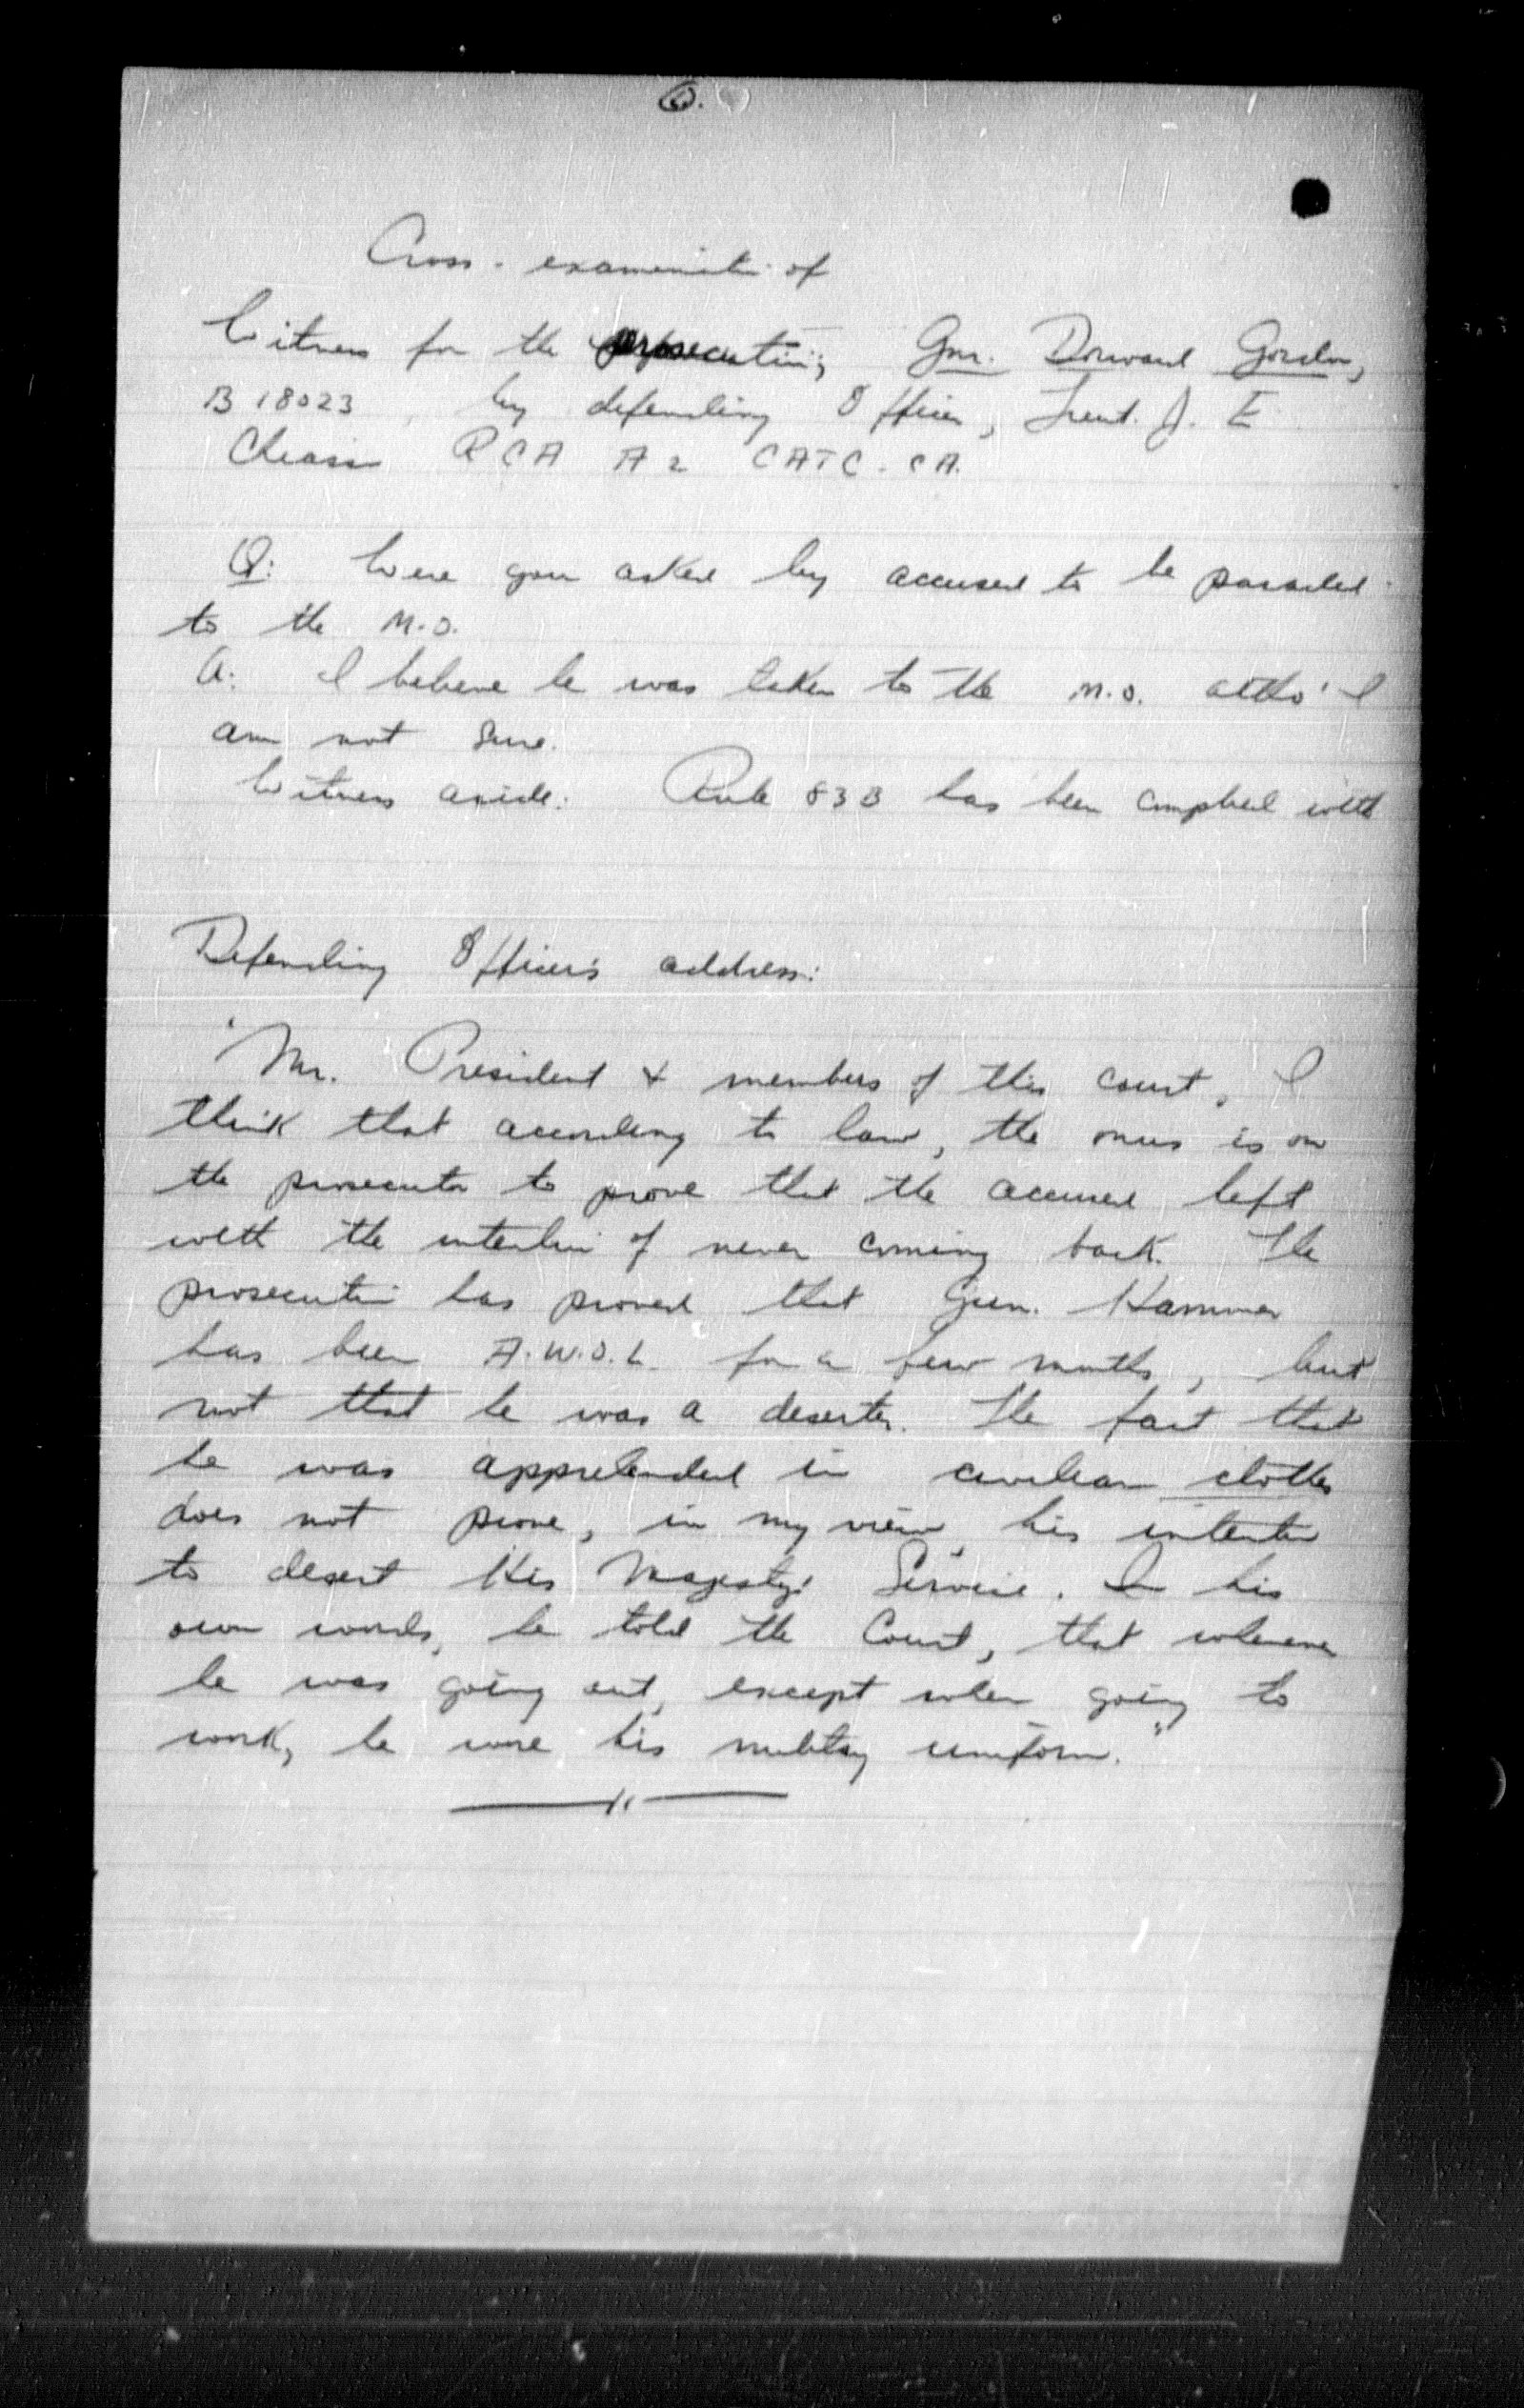 6.
Cross-examination of
Witness for the prosecution, Gnr. Dorward Gordon,
B 18023, by defending Officer, Lieut. J. E.
RCA A2 CATC. CA.
Q: Were you asked by accused to be paraded
to the M.O.
A: I believe he was taken to the M.O. altho' I
am not sure.
Witness aside. Rule 83B has been complied with
Defending Officer's address:
"Mr. President & members of this court, I
think that according to law, the onus is on
the prosecutor to prove that the accused left
with the intention of never coming back. The
prosecution has proved that Gun. Hammer
has been A.W.O.L. for a few months, but
not that he was a deserter. The fact that
he was apprehended in civilian clothes
does not prove, in my view, his intention
to desert His Majesty's Service. In his
own words, he told the Court, that whenever
he was going out, except when going to
work, he wore his military uniform."